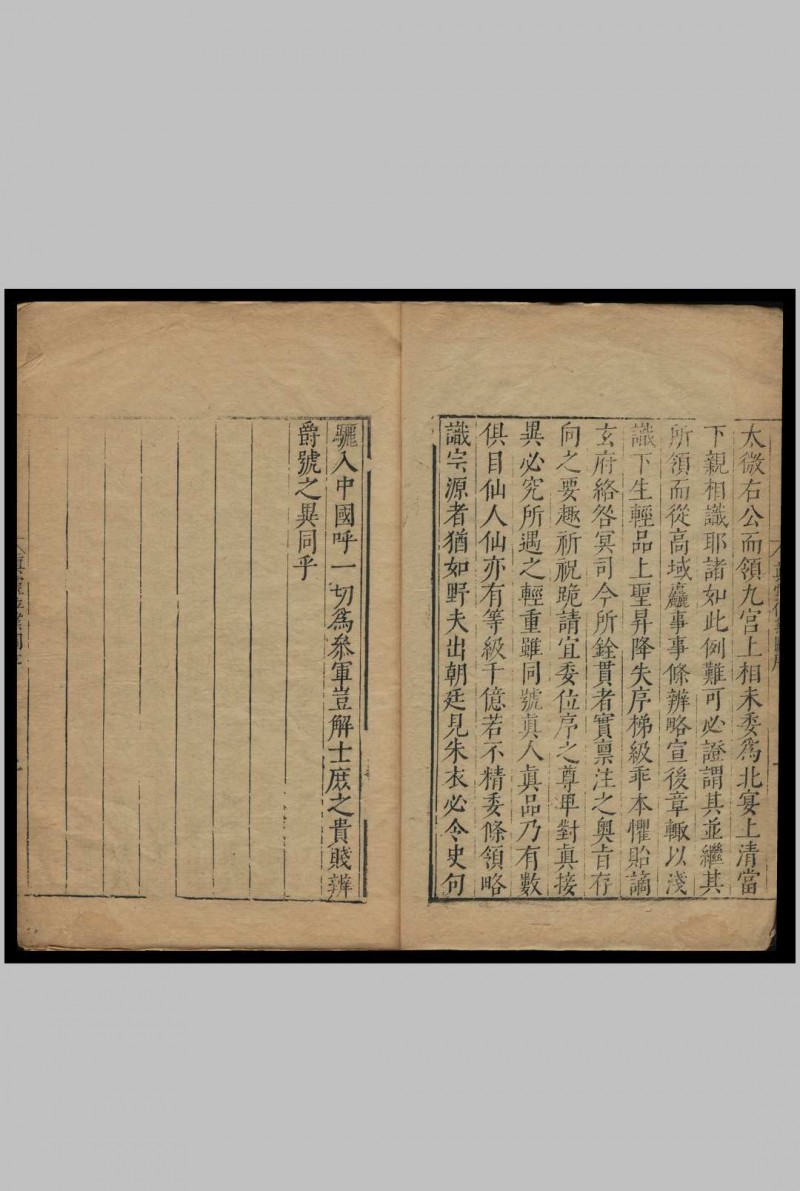 太微右公而領九宮上相未委爲北宴上清當
下親相識耶諸如此例難可必證謂其並繼其
所領而從高域麤事事條辨略宣後章輙以淺
識下生輕品上聖昇降失序梯級乖本懼貽謫
玄府絡咎冥司今所銓貫者實禀注之奧旨存
向之要趣祈祝跪請宜委位序之尊卑對眞接
異必究所遇之輕重雖同號眞人眞品乃有數
俱目仙人仙亦有等級千億若不精委條領略
識宗源者猶如野夫出朝廷見朱衣必令史句
驪入中國呼一切爲叅軍豈解士庶之貴賤辨
爵號之異同乎